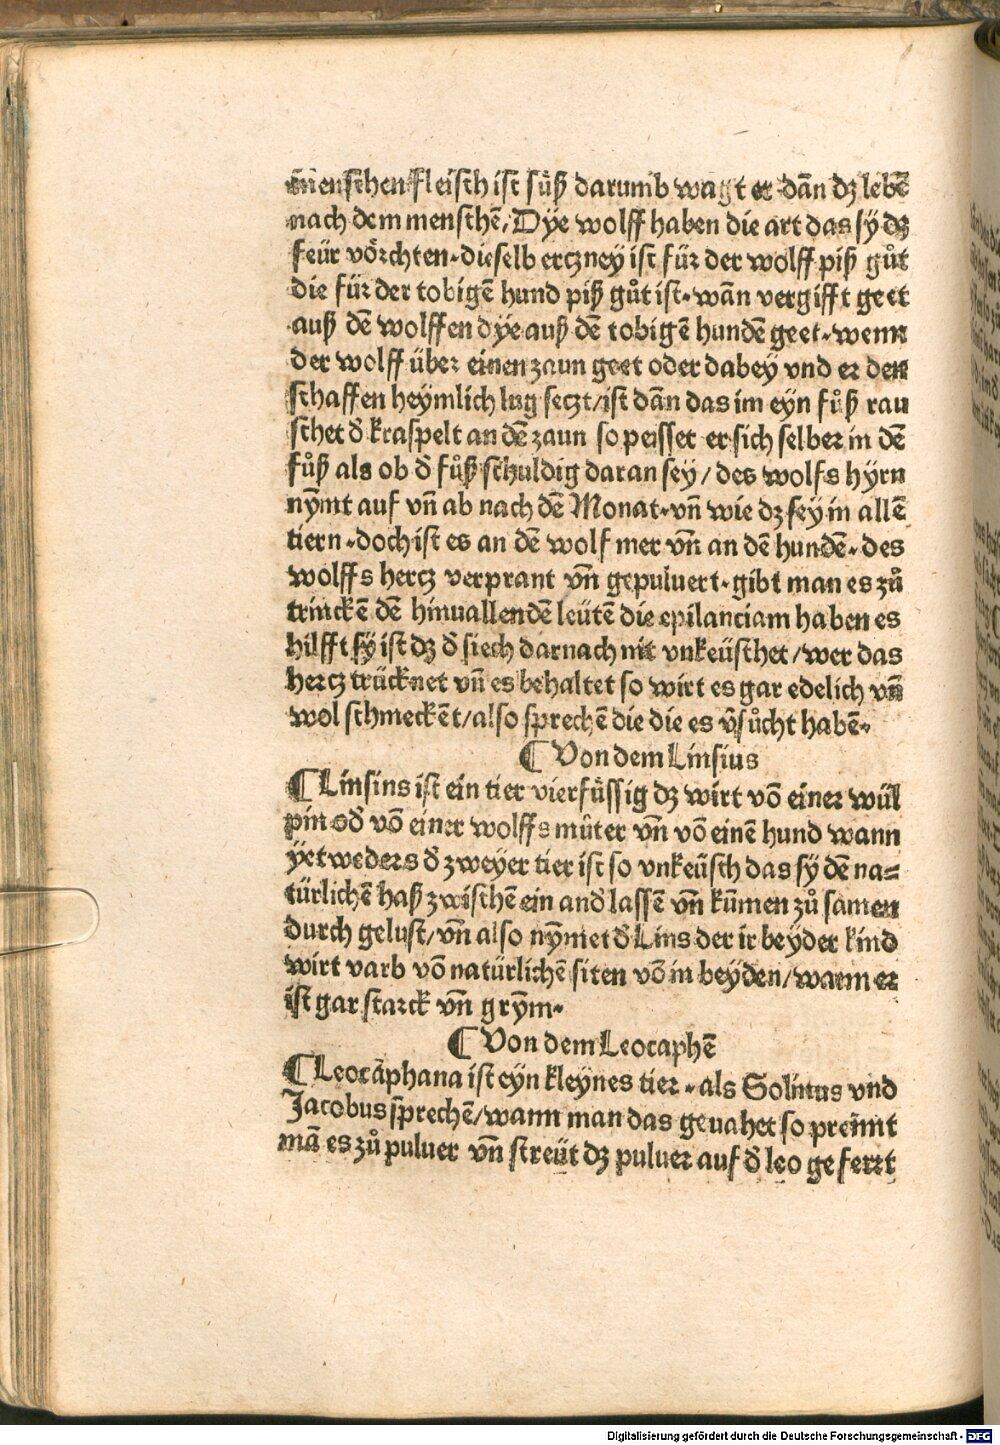 menschen fleisch ist süß darumb wagt er dān dz lebē
nach dem menschē/ Dye wolff haben die art das sÿ dz
feür vörchten·dieselb ertzney ist für der wolff piß gůt
die für der tobigē hund piß gůt ist·wān vergifft geet
auß dē wolffen dÿe auß dē tobigē hundē geet·wenn
der wolff über einen zaun geet oder dabey vnd er den
schaffen heÿmlich lug setzt/ist dān das im eyn fůß rau
schet d̄ kraspelt an dē zaun so peisset er sich selber in dē
fůß als ob d̄ fůß schuldig daran sey/des wolfs hÿrn
nÿmt auf vn̄ ab nach dē Monat·vn̄ wie dz sey in allē
tiern·doch ist es an dē wolf mer vn̄ an dē hundē·des
wolffs hertz verprant vn̄ gepuluert·gibt man es zů
trinckē dē hinuallendē leütē die epilanciam haben es
hilfft sÿ ist dz d̄ siech darnach nit vnkeüschet/wer das
hertz trücknet vn̄ es behaltet so wirt es gar edelich vn̄
wol schmeckēt/also sprechē die die es v̄sůcht habē·
¶ Von dem Linsius
¶ Linsins ist ein tier vierfüssig dz wirt vō einer wül
pin od̄ vō einer wolffs můter vn̄ vō einē hund wann
ÿetweders d̄ zweyer tier ist so vnkeüsch das sÿ dē na=
türlichē haß zwischē ein and̄ lassē vn̄ kūmen zů samen
durch gelust/vn̄ also nÿmet d̄ Lins der ir beyder kind
wirt varb vō natürlichē siten vō in beÿden/wann er
ist gar starck vn̄ grȳm·
¶ Von dem Leocaphē
¶ Leocāphana ist eyn kleynes tier·als Solinus vnd
Jacobus sprechē/wann man das geuahet so prennt
mā es zů puluer vn̄ streüt dz puluer auf d̄ leo gefertt
Digitalisierung gefördert durch die Deutsche Forschungsgemeinschaft - DFG